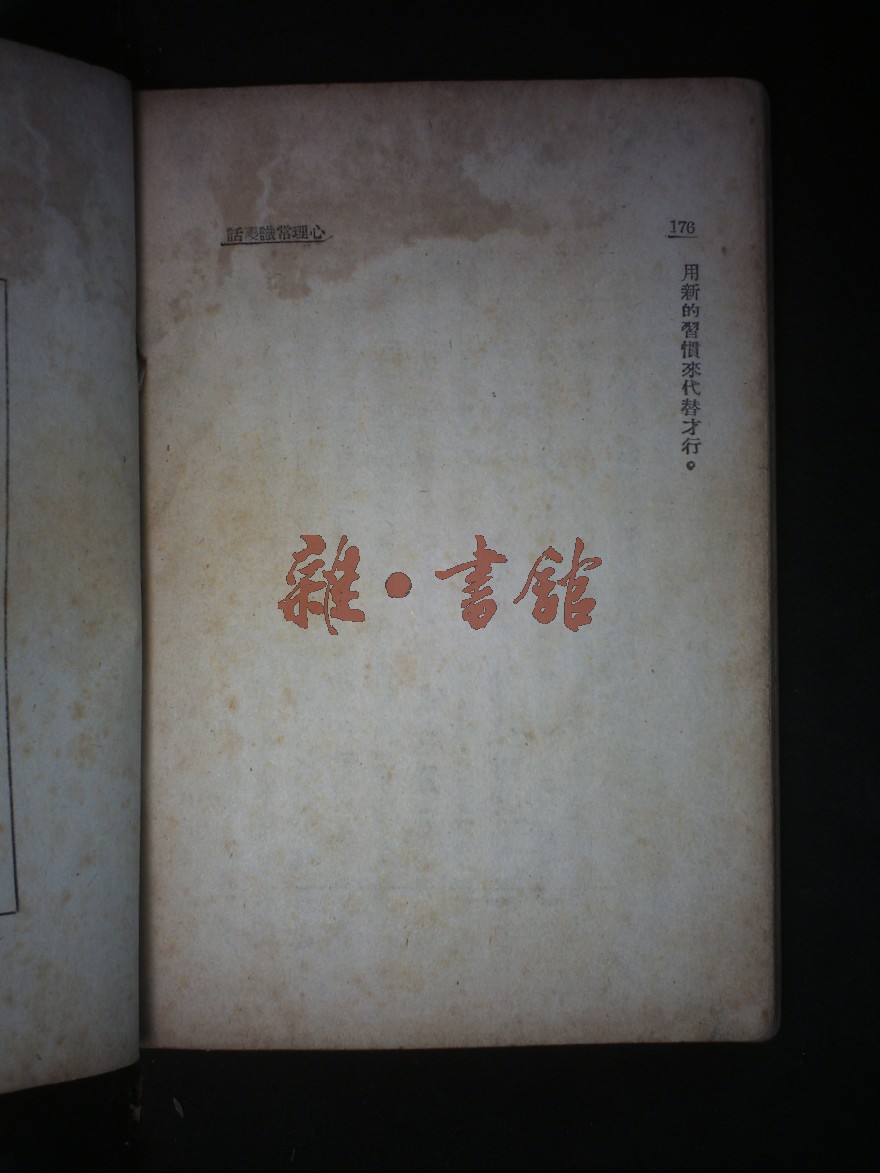 176
心理常識漫話
用新的習慣來代替才行。
雜•書館